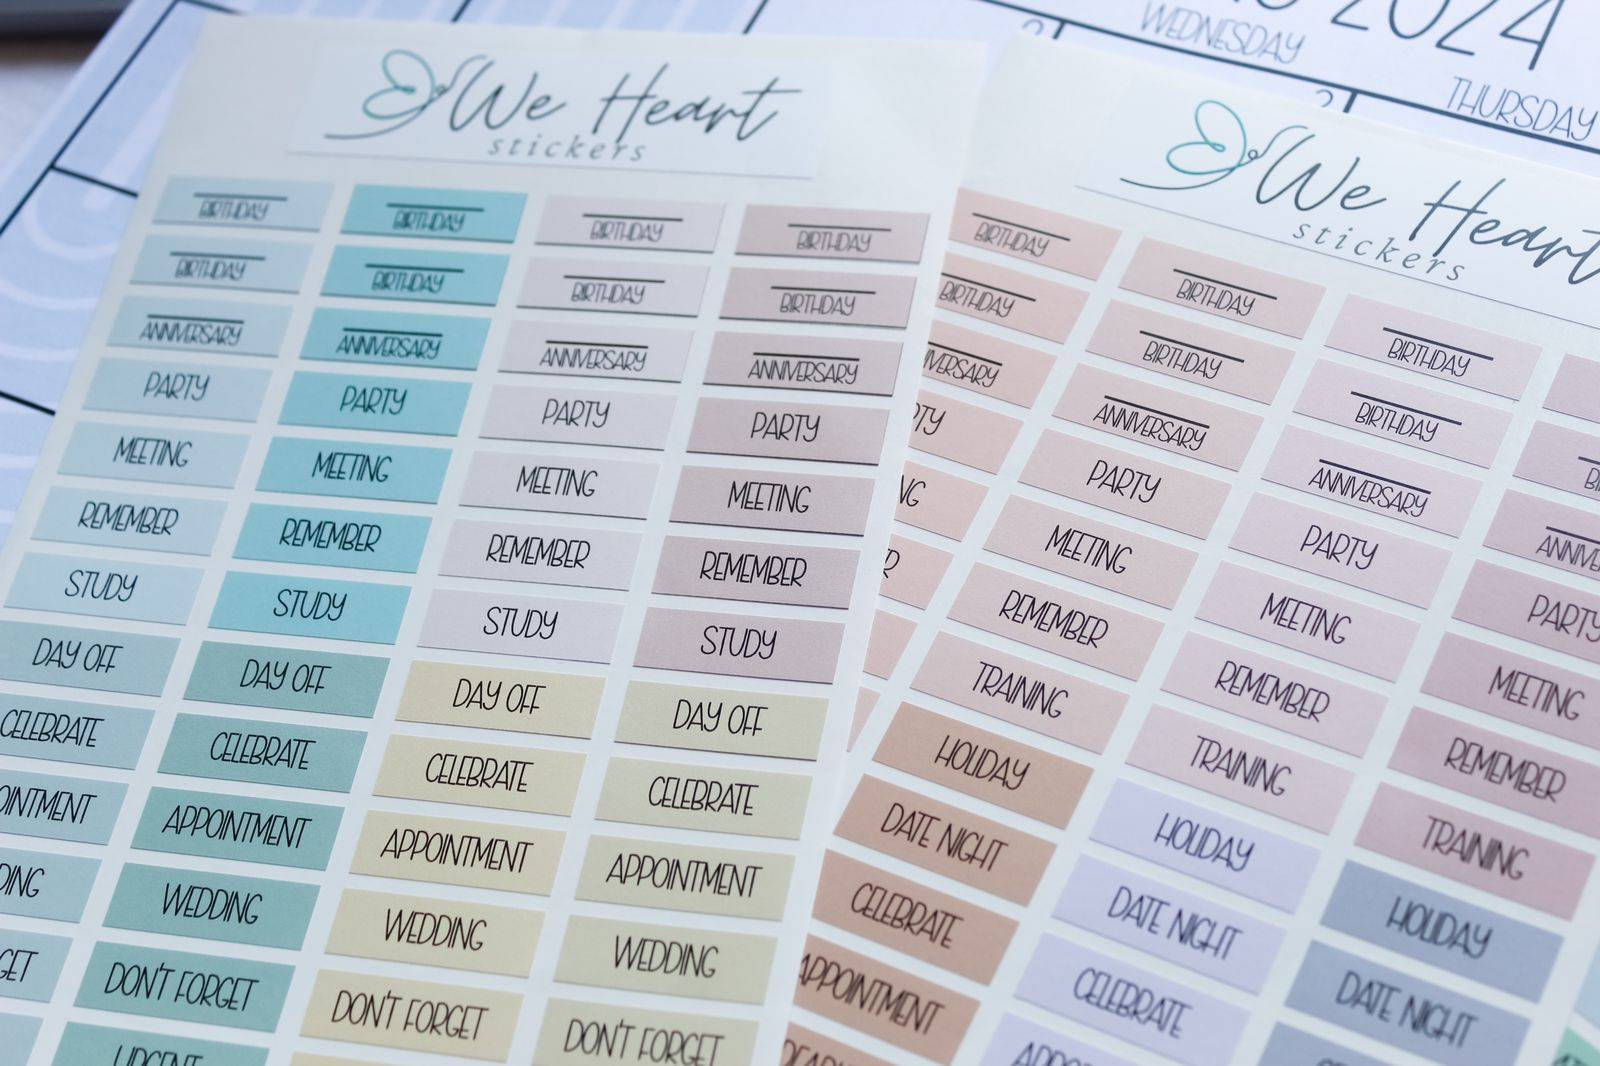 2024
WEDNESDAY
THURSDAY
We Heart
stickers
BIRTHDAY BIRTHDAY BIRTHDAY BIRTHDAY
BIRTHDAY BIRTHDAY BIRTHDAY BIRTHDAY
ANNIVERSARY ANNIVERSARY ANNIVERSARY ANNIVERSARY
PARTY PARTY PARTY PARTY
MEETING MEETING MEETING MEETING
REMEMBER REMEMBER REMEMBER REMEMBER
STUDY STUDY STUDY STUDY
DAY OFF DAY OFF DAY OFF DAY OFF
CELEBRATE CELEBRATE CELEBRATE CELEBRATE
OINTMENT APPOINTMENT APPOINTMENT APPOINTMENT
DING WEDDING WEDDING WEDDING
GET DON'T FORGET DON'T FORGET DON'T FORGET
URGENT
We Heart
stickers
BIRTHDAY BIRTHDAY BIRTHDAY
BIRTHDAY BIRTHDAY BIRTHDAY BI
VERSARY ANNIVERSARY ANNIVERSARY ANNIVE
TY PARTY PARTY PARTY
NG MEETING MEETING MEETING
R REMEMBER REMEMBER REMEMBER
TRAINING TRAINING TRAINING
HOLIDAY HOLIDAY HOLIDAY
DATE NIGHT DATE NIGHT DATE NIGHT
CELEBRATE CELEBRATE
APPOINTMENT